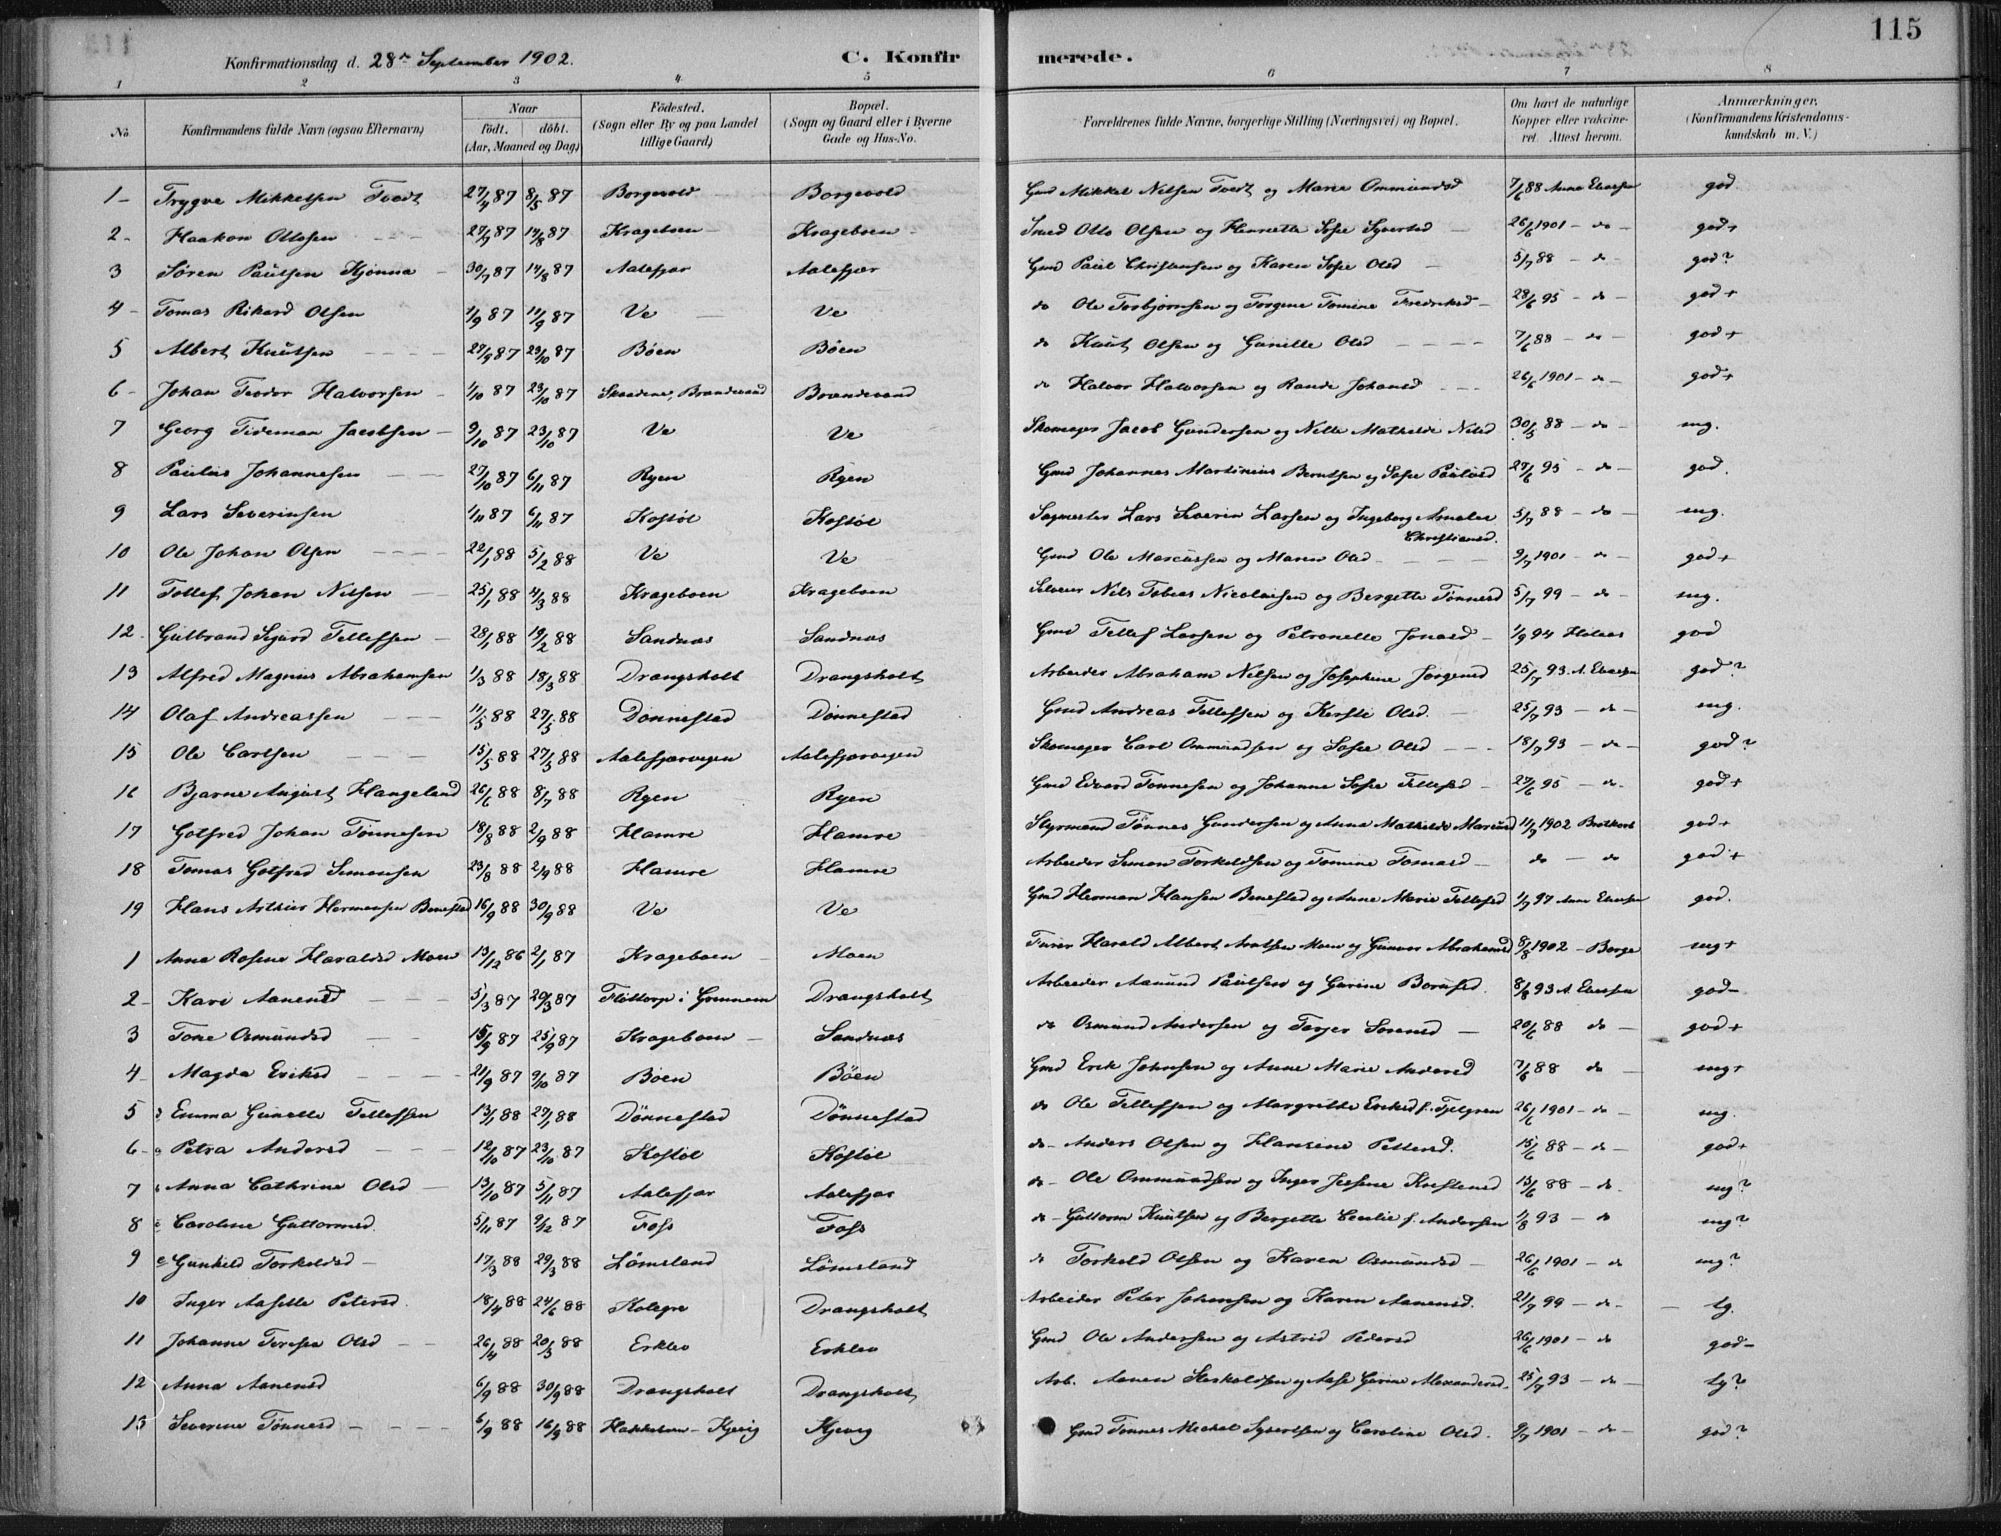 115
Konfirmationsdag d. 28de September 1902. C. Konfirmerede.
1 2 3 4 5 6 7 8
No Konfirmandens fulde Navn (ogsaa Efternavn) Naar født. døbt. (Aar, Maaned og Dag) Fødested. (Sogn eller By og paa Landet tillige Gaard) Bopæl. (Sogn og Gaard eller i Byerne Gade og Hus-No. Forældrenes fulde Navne, borgerlige Stilling (Næringsvei) og Bopæl. Om havt de naturlige Kopper eller vakcineret. Attest herom. Anmærkninger. (Konfirmandens Kristendomskundskab m. V.)
1 Trygve Mikkelsen Tvedt 27/4 87 8/5 87 Borgevold Borgevold Gmd Mikkel Nielsen Tvedt og Marie Ommundsd 7/6 88 Anna god
2 Haakon Ottosen 27/7 87 14/8 87 Krageboen Krageboen Smed Otto Olsen og Henriette Sofie Syvertsd 26/6 1901 - do - god+
3 Søren Paulsen Kjønna 30/7 87 14/8 87 Aalefjær Aalefjær Gmd Paul Christensen og Karen Sofie Olsd 5/7 88 - do god?
4 Tomas Rikard Olsen 1/9 87 11/9 87 Ve Ve do Ole Torbjørnsen og Torgine Tomine Fredriksd 28/6 95 - do god+
5 Albert Knutsen 27/9 87 23/10 87 Bøen Bøen do Knut Olsen og Gunille Olsd 7/6 88 - do - god+
6 Johan Teodor Halvorsen 1/10 87 23/10 87 Skaadene, Brændevand Brændevand do Halvor Halvorsen og Rande Johansd 26/6 1901 - do - god+
7 Georg Tideman Jacobsen 9/10 87 23/10 87 Ve Ve Skomager Jacob Gundersen og Nelle Mathilde Nilsd 30/5 88 - do - mg.
8 Paulus Johannesen 27/10 87 6/11 87 Ryen Ryen Gmd Johannes Martinius Berntsen og Sofie Paulsd 27/6 95 - do - god.
9 Lars Severinsen 1/11 87 6/11 87 Kostøl Kostøl Sagmester Lars Severin Larsen og Ingeborg Amalie Christiansd. 5/7 88 - do - mg.
10 Ole Johan Olsen 22/1 88 5/2 88 Ve Ve Gmd Ole Marcussen og Maren Olsd 9/7 1901 - do god+
11 Tollef Johan Nilsen 25/1 88 4/3 88 Krageboen Krageboen Selveier Nils Tobias Nicolaisen og Bergette Tønnesd 5/7 99 - do - mg.
12 Gulbrand Sigurd Tellefsen 28/1 88 19/2 88 Sandnæs Sandnæs Gmd Tellef Larsen og Petronelle Jonasd 1/9 94 god
13 Alfred Magnus Abrahamsen 1/3 88 18/3 88 Drangsholt Drangsholt Arbeider Abraham Nilsen og Josephine Jørgensd 25/7 93 A. god?
14 Olaf Andreassen 11/5 88 27/5 88 Dønnestad Dønnestad Gmd Andreas Tellefsen og Kirsti Olsd. 25/7 93 - do - mg.
15 Ole Carlsen 15/5 88 27/5 88 Aalefjærvegen Aalefjærvegen Skomager Carl Ommundsen og Sofie Olsd 18/7 93 - do - god?
16 Bjarne August Hangeland 26/6 88 8/7 88 Ryen Ryen Gmd Edvard Tønnesen og Johanne Sofie Tellefsd 27/6 95 - do. god+
17 Gotfred Johan Tønnesen 18/8 88 2/9 88 Hamre Hamre Styrmand Tønnes Gundersen og Anna Mathilde Marcusd 11/7 1902 god+
18 Tomas Gotfred Simonsen 23/8 88 2/9 88 Hamre Hamre Arbeider Simon Torkeldsen og Tomine Tomasd do - do god+
19 Hans Arthur Hermansen Benestad 16/9 88 30/9 88 Ve Ve Gmd Herman Hansen Benestad og Anne Marie Tellefsd 1/7 97 god.
1 Anna Rosine Haraldsd Moen 13/12 86 2/1 87 Krageboen Moen Harald Albert Moen og Gunvor Abrahamsd 8/8 1902 - Borge mg+
2 Kari Aanensd 5/3 87 20/3 87 i Grimnem Drangsholt Arbeider Aanund Paulsen og Gurine 8/8 93 A. god-
3 Tone Osmundsd 15/9 87 25/9 87 Krageboen Sandnæs do Osmund Andersen og Terjer Sørensd 20/6 88 do god+
4 Magda Eriksd 21/9 87 9/10 87 Bøen Bøen Gmd Erik Johnsen og Anne Marie Andersd 7/6 88 do mg+
5 Emma Gunelle Tellefsen 13/1 88 27/1 88 Dønnestad Dønnestad do Ole Tellefsen og Margrethe Eriksd f. 26/6 1901 - do mg.
6 Petra Andersd 12/10 87 23/10 87 Kostøl Kostøl do - Anders Olsen og Hansine Pettersd. 15/6 88 - do god+
7 Anna Cathrine Olsd 13/10 87 5/11 87 Aalefjær Aalefjær do - Ole Ommundsen og Inger Kristensd 15/6 88 - do mg?
8 Caroline Guttormsd. 5/11 87 9/12 87 Foss Foss do - Guttorm Knutsen og Bergette Cecilie f. Andersen 1/8 93 - do mg?
9 Gunhild Torkeldsd 17/3 88 29/3 88 Lømsland Lømsland do Torkeld Olsen og Karen Osmundsd 26/6 1901 - do mg?
10 Inger Aaselle Petersd. 18/4 88 24/6 88 Drangsholt Arbeider Peter Johansen og Karen Aanensd. 21/7 99 - do - tg.
11 Johanne Teresia Olsd 26/4 88 20/5 88 Erklev Erklev Gmd Ole Andersen og Astrid Pedersd 26/6 1901 - do god-
12 Anna Aanensd 6/9 88 30/9 88 Drangsholt Drangsholt Arb. Aanen og Aase Gurine Alexandersd 25/7 93 - do - tg?
13 Severine Tønnesd 6/9 88 16/9 88 Kjevig Kjevig Gmd Tønnes Michal Syvertsen og Caroline Olsd. 9/7 1901 - do - god?